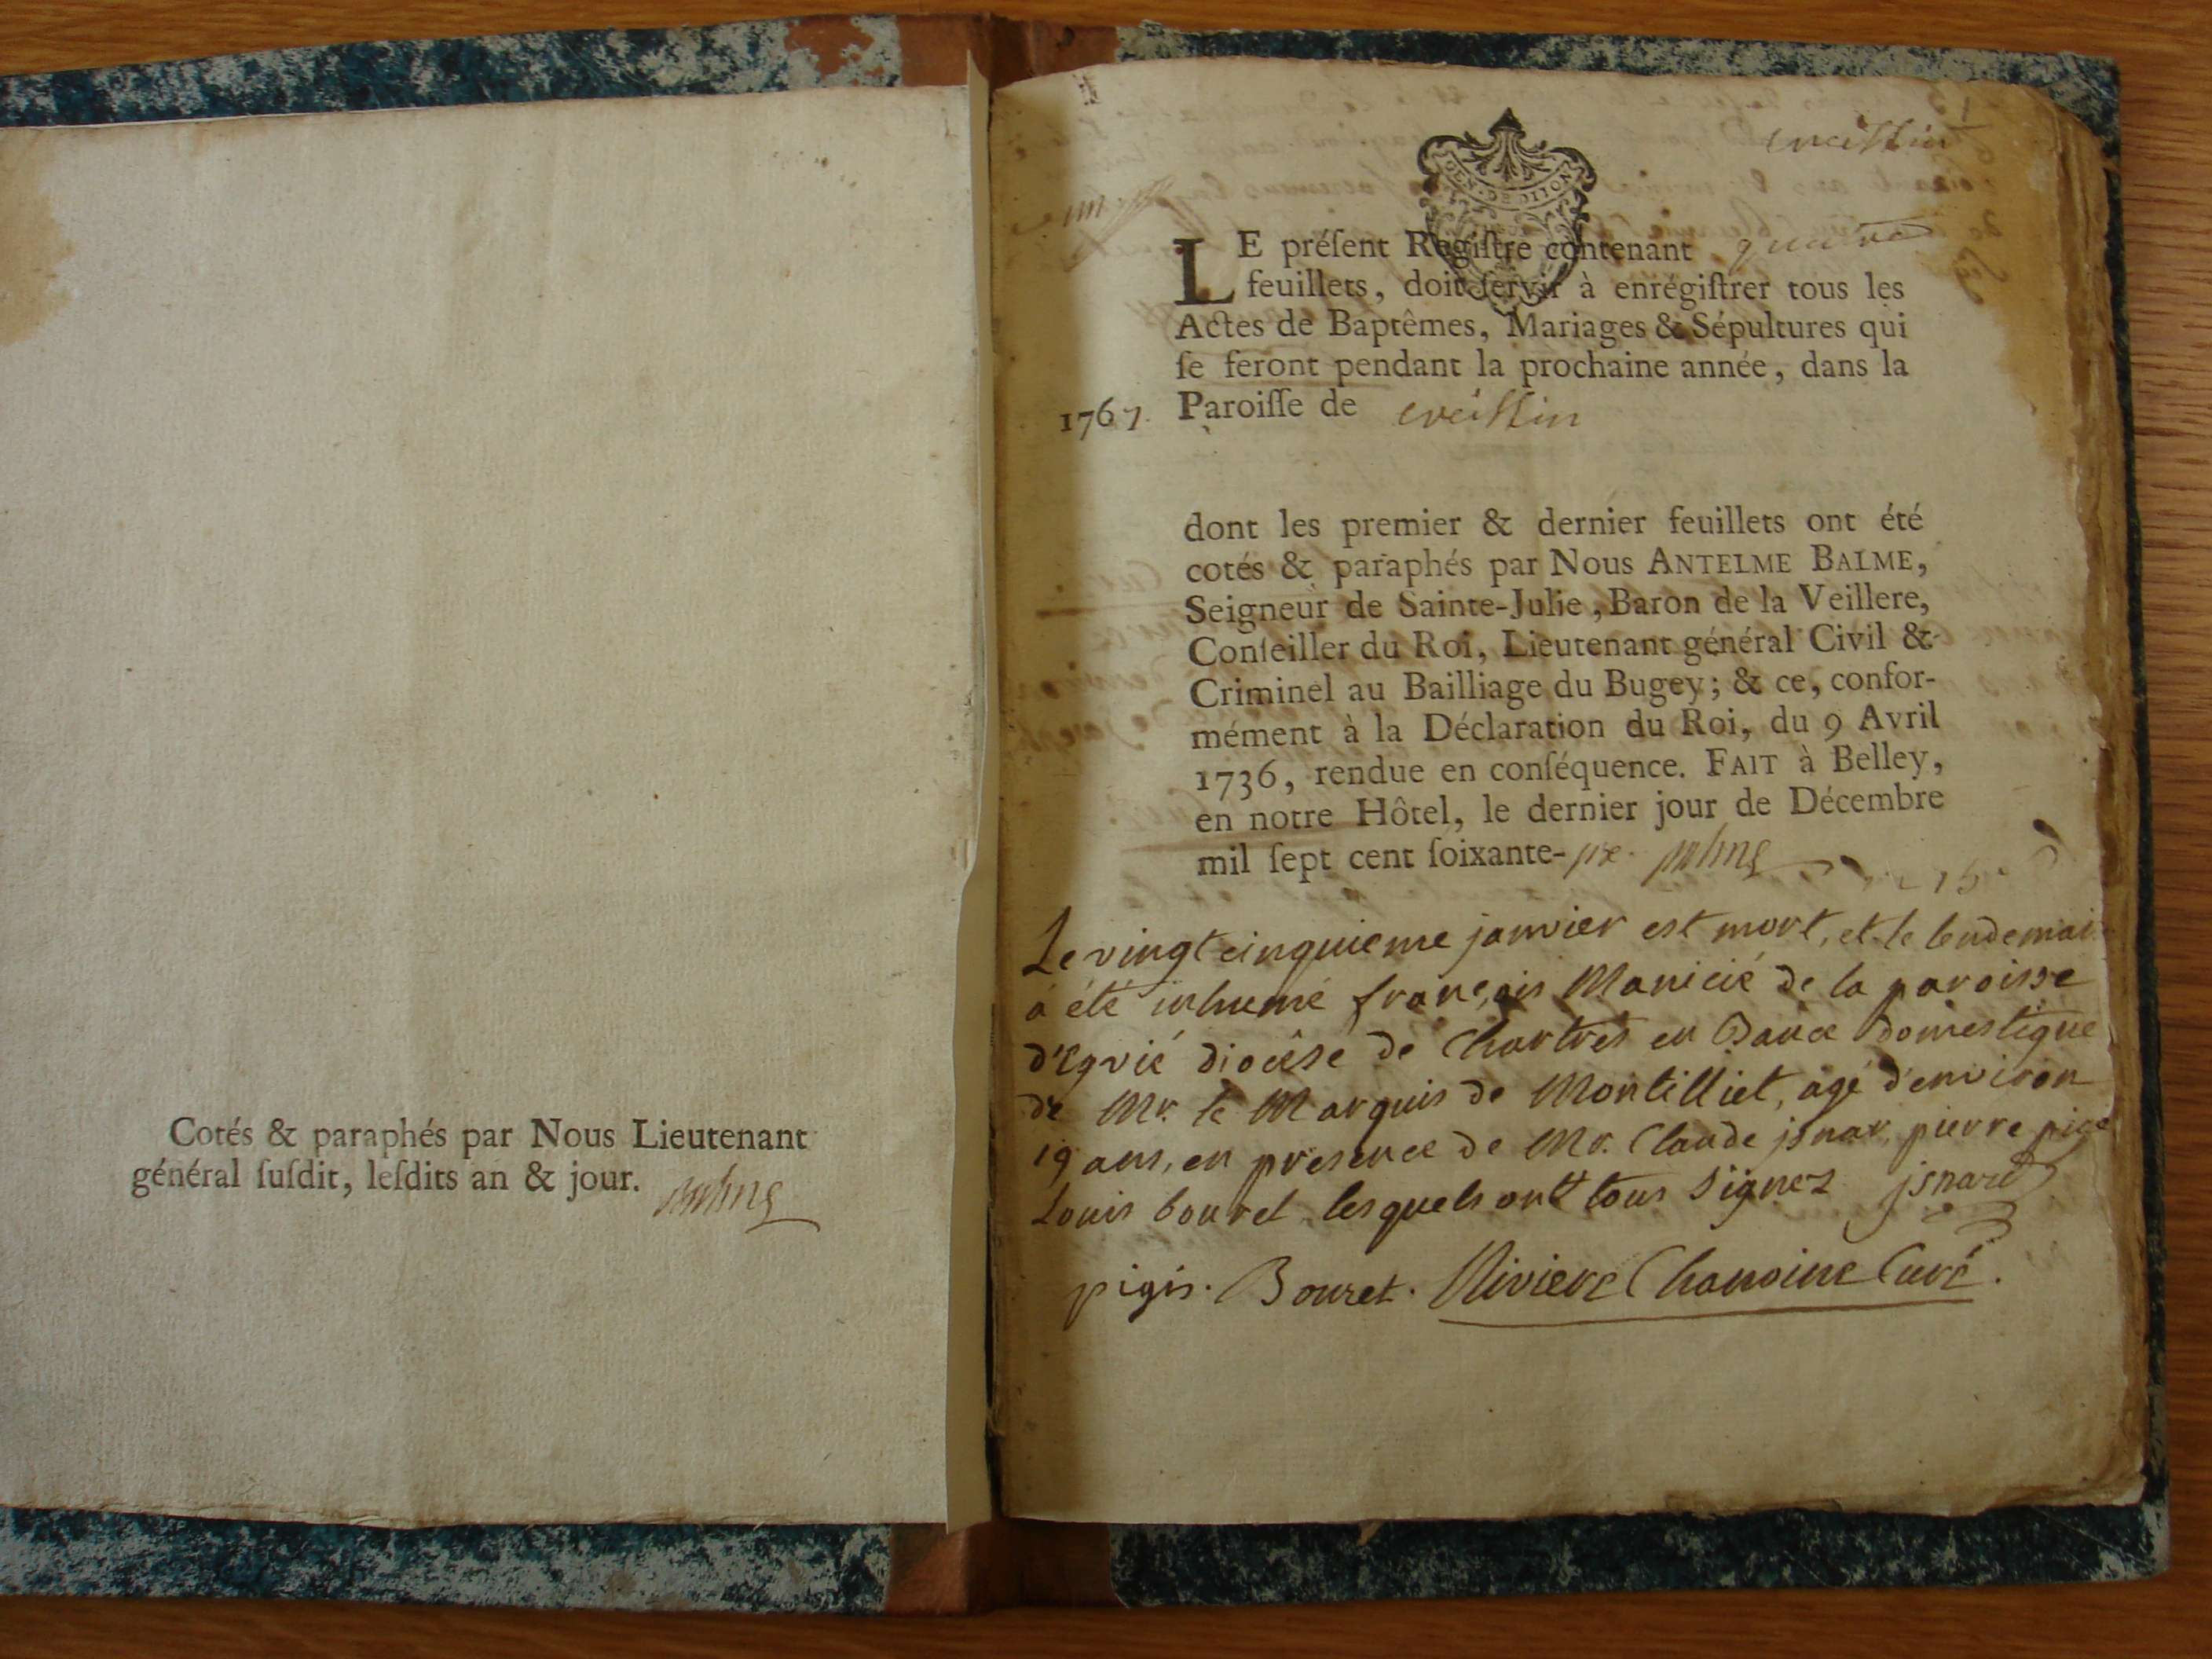 Cotés & paraphés par Nous Lieutenant
général ſuſdit, leſdits an & jour.
GEN. DE DIJON
un
LE préſent Regiſtre contenant quatre
feuillets, doit ſervir à enrégiſtrer tous les
Actes de Baptêmes, Mariages & Sépultures qui
ſe feront pendant la prochaine année, dans la
1767. Paroiſſe de
dont les premier & dernier feuillets ont été
cotés & paraphés par Nous ANTELME BALME,
Seigneur de Sainte-Julie, Baron de la Veillere,
Conſeiller du Roi, Lieutenant général Civil &
Criminel au Bailliage du Bugey; & ce, confor-
mément à la Déclaration du Roi, du 9 Avril
1736, rendue en conſéquence. FAIT à Belley,
en notre Hôtel, le dernier jour de Décembre
mil ſept cent ſoixante-
Le vingt cinquieme janvier est mort, et le lendemai
a été inhumé françois Manicié de la paroisse
diocèse de Chartres en domestique
de Mr. le Marquis de Montilliet, agé d'environ
19 ans, en presence de Mr. Claude jsnar, pierre
Louis bouret lesquels ont tous signez jsnard
pigis. Bouret. Riviere Chanoine Curé.